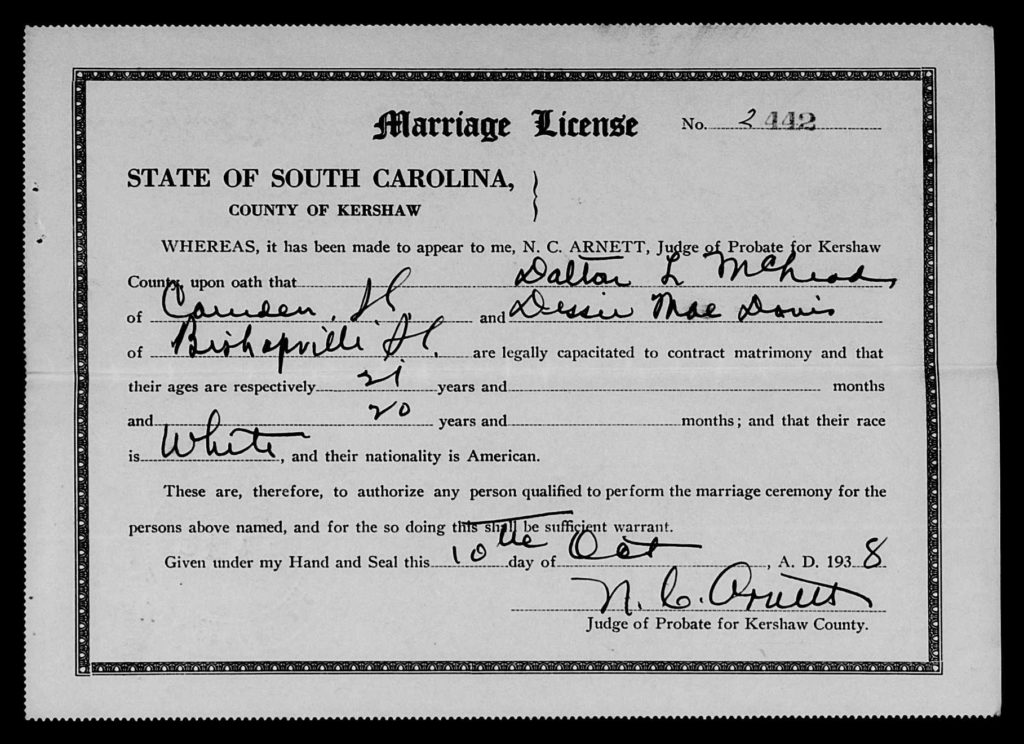 Marriage License No. 2442
STATE OF SOUTH CAROLINA,
COUNTY OF KERSHAW
WHEREAS, it has been made to appear to me, N. C. ARNETT, Judge of Probate for Kershaw
County, upon oath that Dalton L
of Camden, S.C. and Dessie Mae Davis
of Bishopville S.C. are legally capacitated to contract matrimony and that
their ages are respectively 21 years and months
and 20 years and months; and that their race
is White, and their nationality is American.
These are, therefore, to authorize any person qualified to perform the marriage ceremony for the
persons above named, and for the so doing this shall be sufficient warrant.
Given under my Hand and Seal this 10th day of Oct, A. D. 1938
N. C. Arnett
Judge of Probate for Kershaw County.